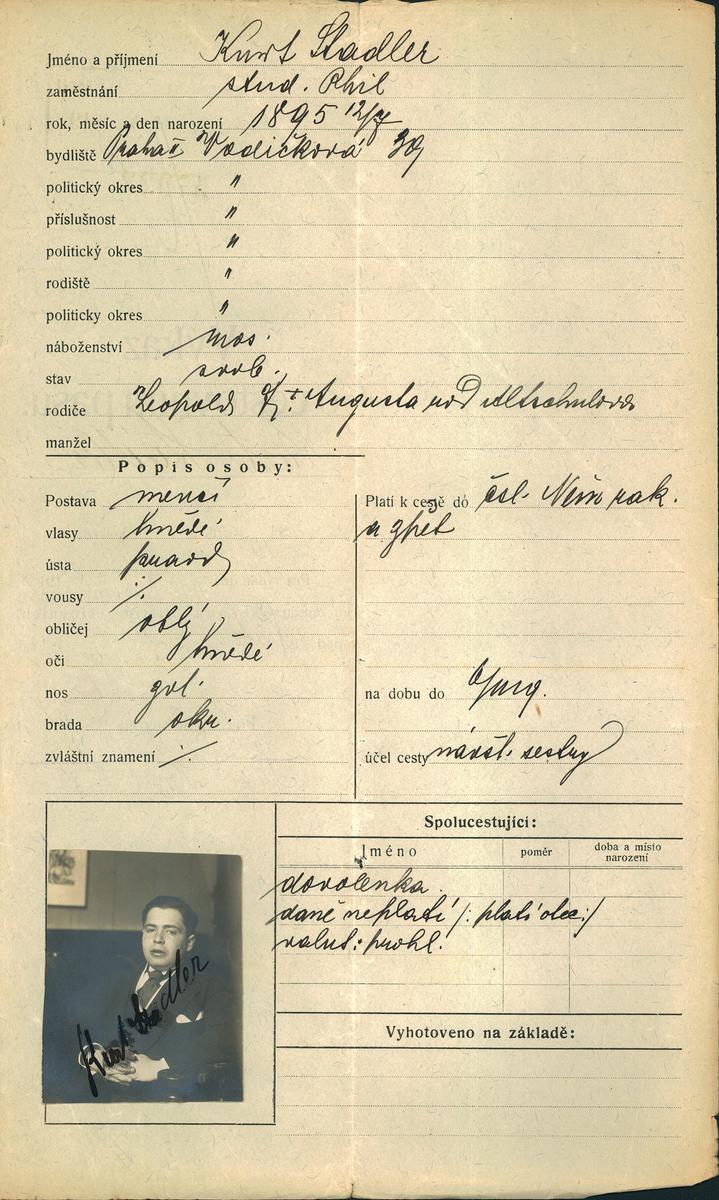 Jméno a příjmení Kurt Stadler
zaměstnání stud. Phil
rok, měsíc a den narození 1895 12/7
bydliště Praha II Vodičková 39
politický okres "
příslušnost "
politický okres "
rodiště "
politicky okres "
náboženství mos.
stav svob.
rodiče Leopold Augusta rod Altschulova
manžel
Popis osoby:
Postava menší
vlasy hnědé
ústa pravid
vousy ·/.
obličej oblý
oči hnědé
nos
brada okr.
zvláštní znamení ·/.
Platí k cestě do čsl. Něm rak.
a zpět
na dobu do
účel cesty návšt. sestry
Spolucestující:
Jméno poměr doba a místo narození
dovolenka
daně neplatí /: platí otec :/
valut: prohl.
Vyhotoveno na základě:
Kurt Stadler